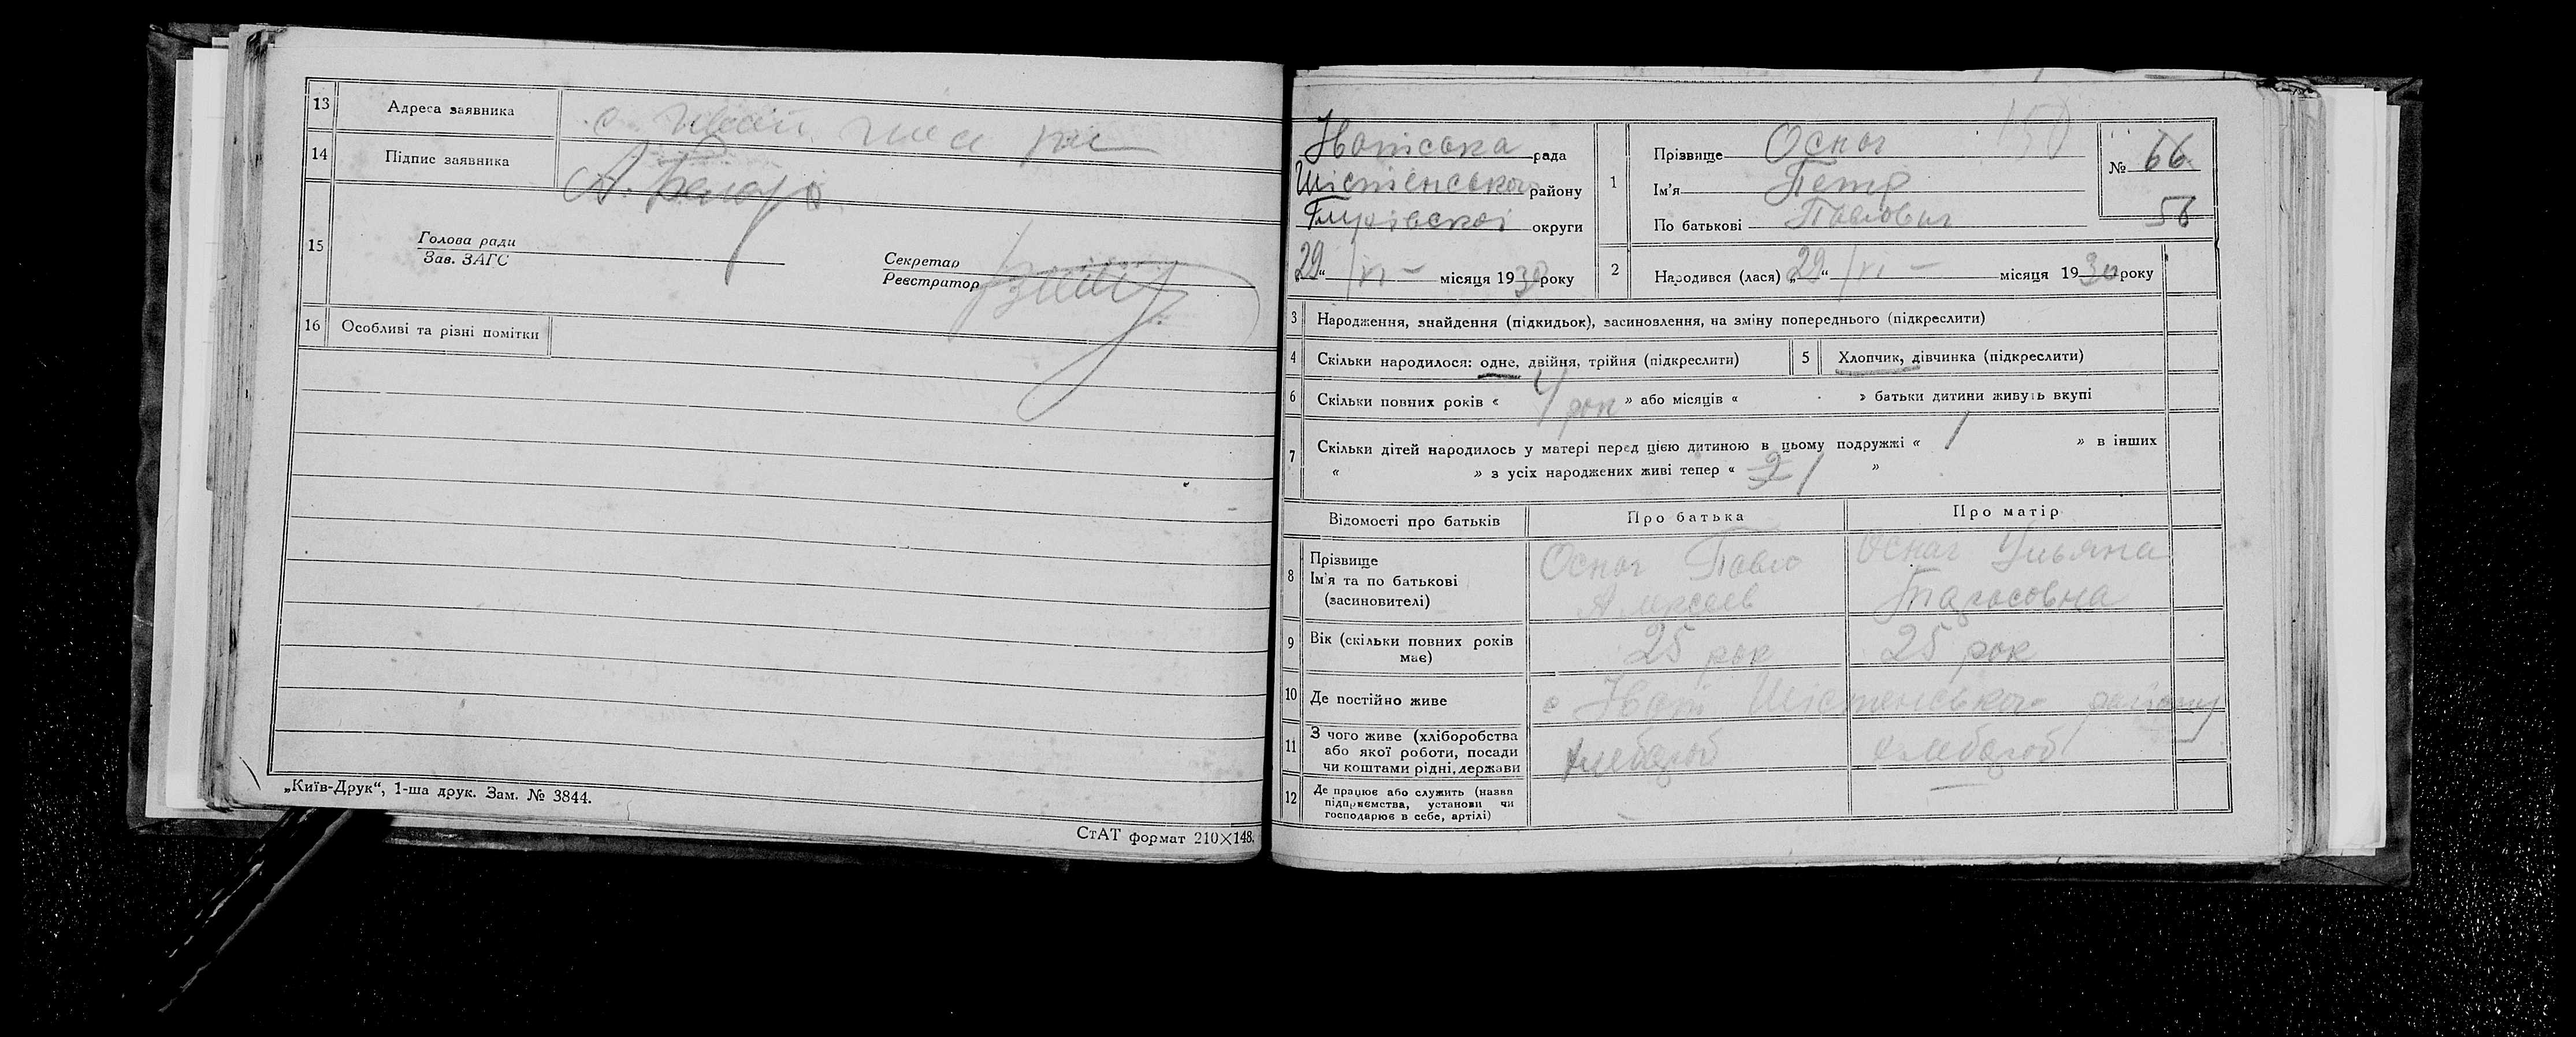 13 Адреса заявника с.
14 Підпис заявника
15
Голова ради
Зав. ЗАГС
Секретар
Реєстратор
16 Особливі та різні помітки
„Київ-Друк“, 1-ша друк. Зам. № 3844.
СтАТ формат 210×148.
150
Івотська рада
Шістенського району
Глухівської округи
„29“ VI – місяця 1930 року
1 Прізвище Оснач
Ім'я Петр
По батькові Павлович
№ 66
56
2 Народився (лася) „29“ VI – місяця 1930 року
3 Народження, знайдення (підкидьок), засиновлення, на зміну попереднього (підкреслити)
4 Скільки народилося: одне, двійня, трійня (підкреслити)
5 Хлопчик, дівчинка (підкреслити)
6 Скільки повних років « 4 рок » або місяців « » батьки дитини живуть вкупі
7 Скільки дітей народилось у матері перед цією дитиною в цьому подружжі « 1 » в інших
« » з усіх народжених живі тепер « 1 »
Відомості про батьків Про батька Про матір
8 Прізвище
Ім'я та по батькові
(засиновителі)
Оснач Павло
Алексеев
Оснач Ульяна
Тарасовна
9 Вік (скільки повних років
має)
25 рок 25 рок
10 Де постійно живе с Івот Шістенського району
11 З чого живе (хліборобства
або якої роботи, посади
чи коштами рідні, держави
хлебароб хлебароб
12 Де працює або служить (назва
підприємства, установи чи
господарює в себе, артілі)